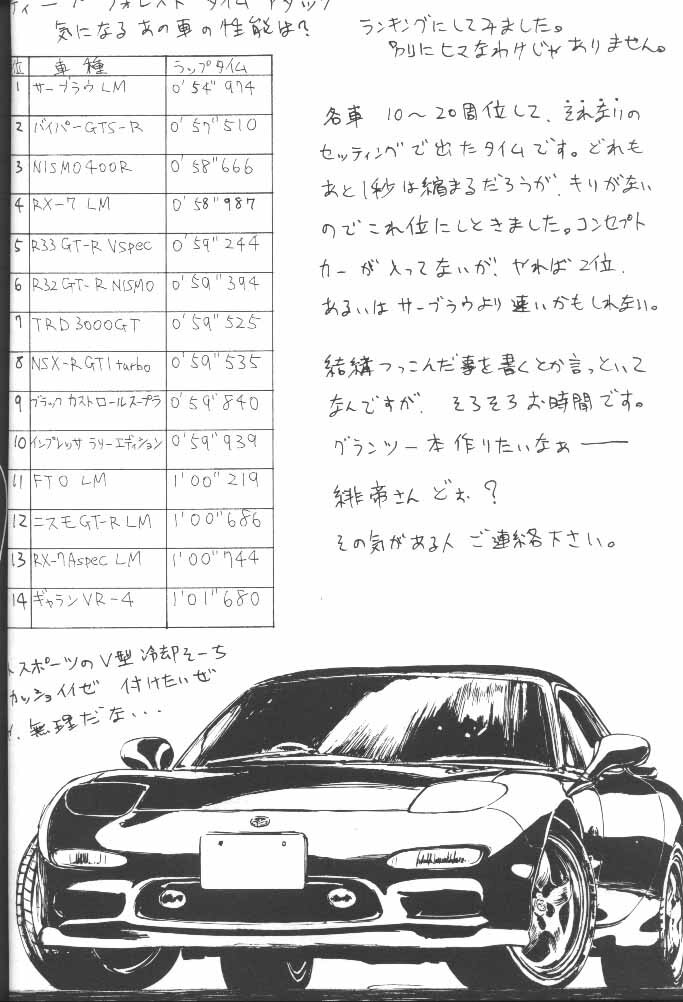 ディープ フォレスト タイム アタック
気になる あの車の性能は?
ランキングにしてみました。
別にヒマなわけじゃありません。
位 車種 ラップタイム
1 サーブラウLM 0'54"974
2 バイパーGTS-R 0'57"510
3 NISMO400R 0'58"666
4 RX-7 LM 0'58"987
5 R33 GT-R Vspec 0'59"244
6 R32 GT-R NISMO 0'59"394
7 TRD3000GT 0'59"525
8 NSX-R GT1 turbo 0'59"535
9 ブラック カストロールスープラ 0'59"840
10 インプレッサ ラリーエディション 0'59"939
11 FTO LM 1'00"219
12 ニスモGT-R LM 1'00"686
13 RX-7 Aspec LM 1'00"744
14 ギャランVR-4 1'01"680
各車 10〜20周位して、それなりの
セッティングで出たタイムです。どれも
あと1秒は縮まるだろうが、キリがない
のでこれ位にしときました。コンセプト
カーが入ってないが、やれば2位、
あるいはサーブラウより速いかもしれない。
結構つっこんだ事を書くとか言っといて
なんですが、そろそろお時間です。
グランツー本作りたいなぁー
緋帝さんどぉ?
その気がある人ご連絡下さい。
スポーツのV型冷却そーち
カッショイイぜ 付けたいぜ
無理だな...